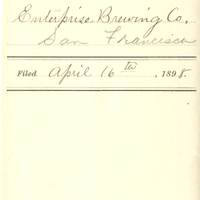 Enterprise Brewing Co.
San Francisco
Filed April 16th, 1898.